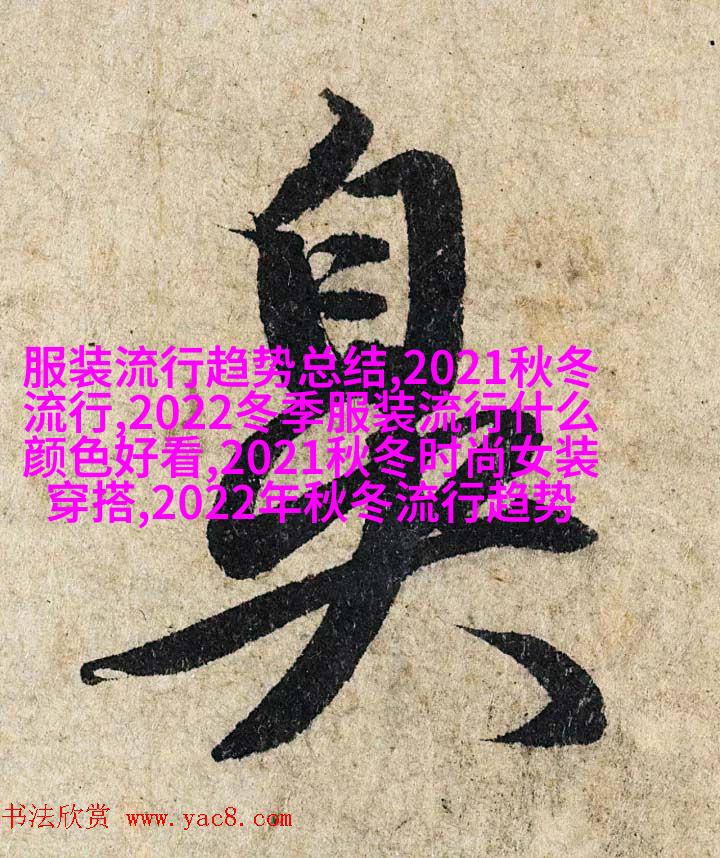 臭
服装流行趋势总结,2021秋冬
流行,2022冬季服装流行什么
颜色好看,2021秋冬时尚女装
穿搭,2022年秋冬流行趋势
书法欣赏 www.yac8.com